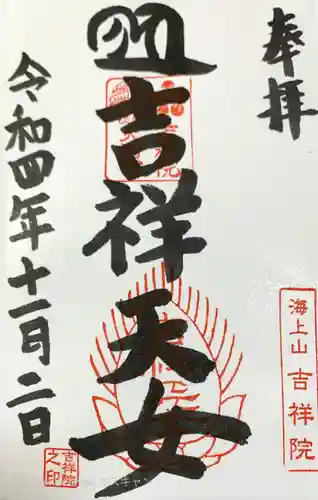 奉拝
海上山 吉祥院
吉祥天女
令和四年十一月二日
吉祥院
之印